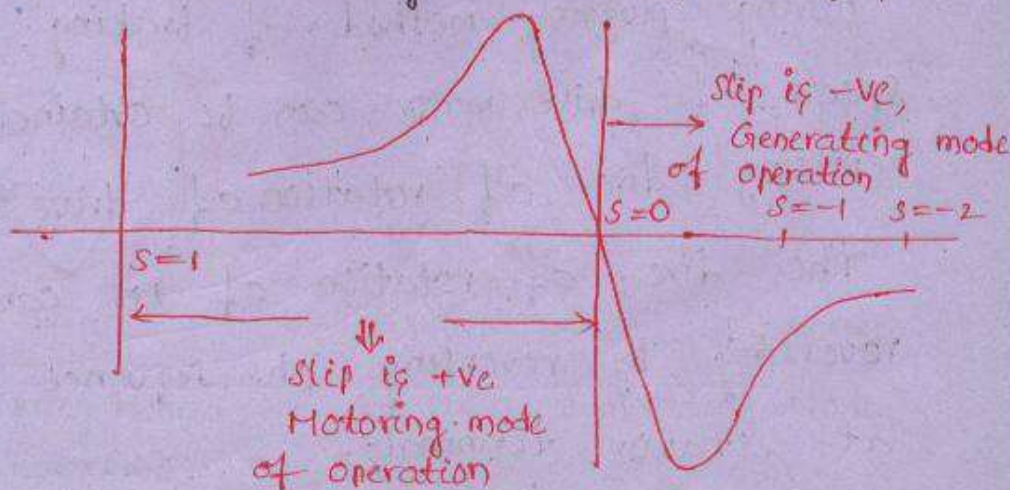 Slip is -ve,
Generating mode
of operation
S=0
S=-1
S=-2
S=1
Slip is +ve
Motoring mode
of operation